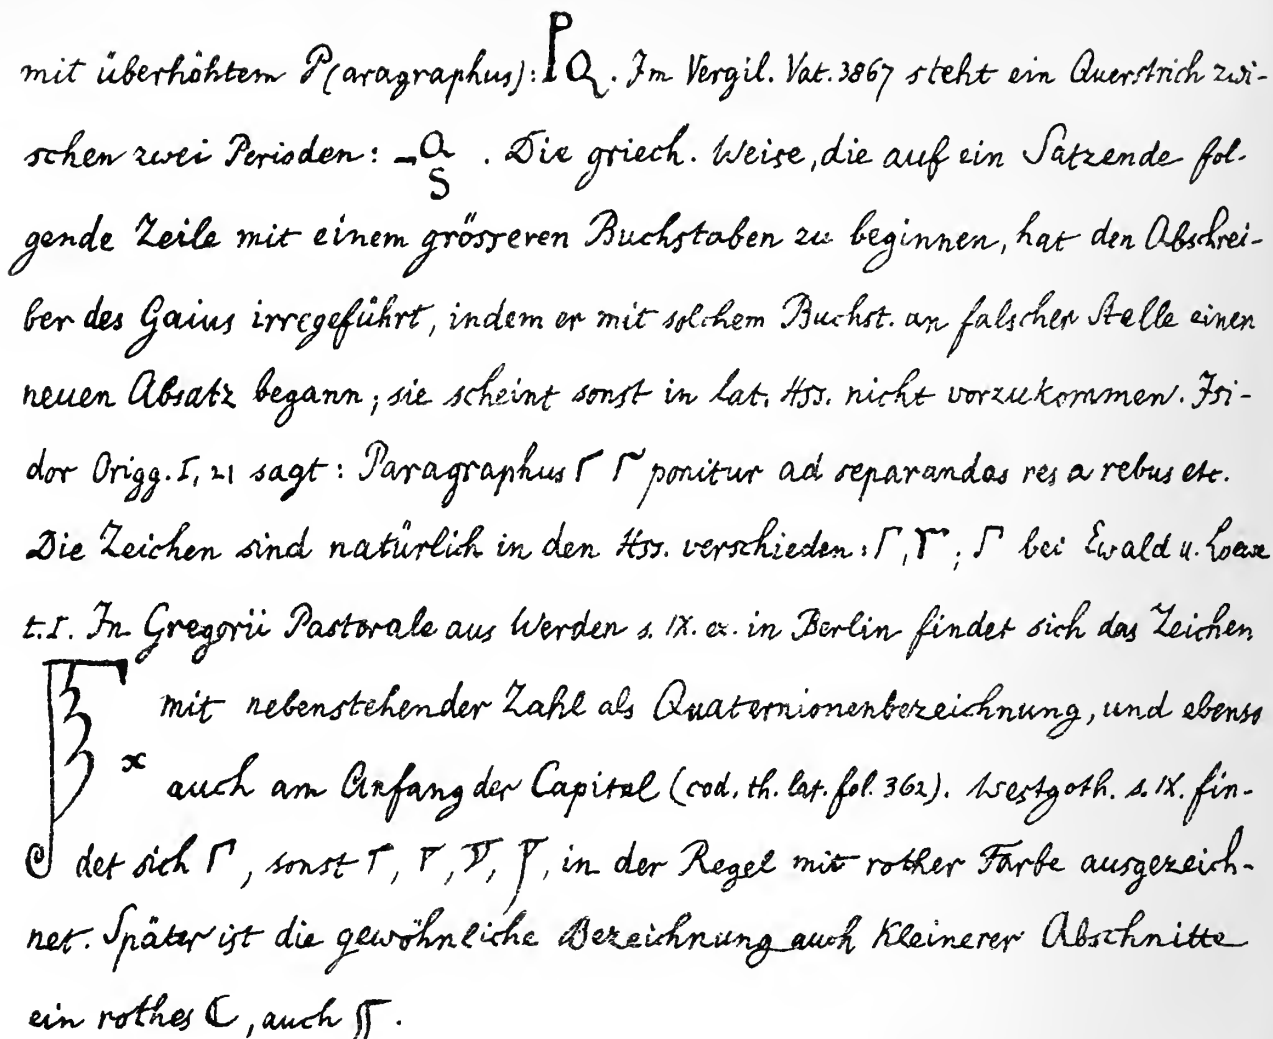 mit überhöhtem P(aragraphus): PQ. Im Vergil. Vat. 3867 steht ein Querstrich zwi-
schen zwei Perioden: –Q S . Die griech. Weise, die auf ein Satzende fol-
gende Zeile mit einem grösseren Buchstaben zu beginnen, hat den Abschrei-
ber des Gaius irregeführt, indem er mit solchem Buchst. an falscher Stelle einen
neuen Absatz begann; sie scheint sonst in lat. Hss. nicht vorzukommen. Isi-
dor Origg. I, 21 sagt: Paragraphus Γ Γ ponitur ad separandas res a rebus etc.
Die Zeichen sind natürlich in den Hss. verschieden: Γ, Γ; Γ bei Ewald u. Loewe
t. I. In Gregorii Pastorale aus Werden s. IX. ex. in Berlin findet sich das Zeichen
mit nebenstehender Zahl als Quaternionenbezeichnung, und ebenso
x auch am Anfang der Capitel (cod. th. lat. fol. 362). Westgoth. s. IX. fin-
det sich Γ, sonst Γ, Γ, Γ, Γ, in der Regel mit rother Farbe ausgezeich-
net. Später ist die gewöhnliche Bezeichnung auch kleinerer Abschnitte
ein rothes C, auch .